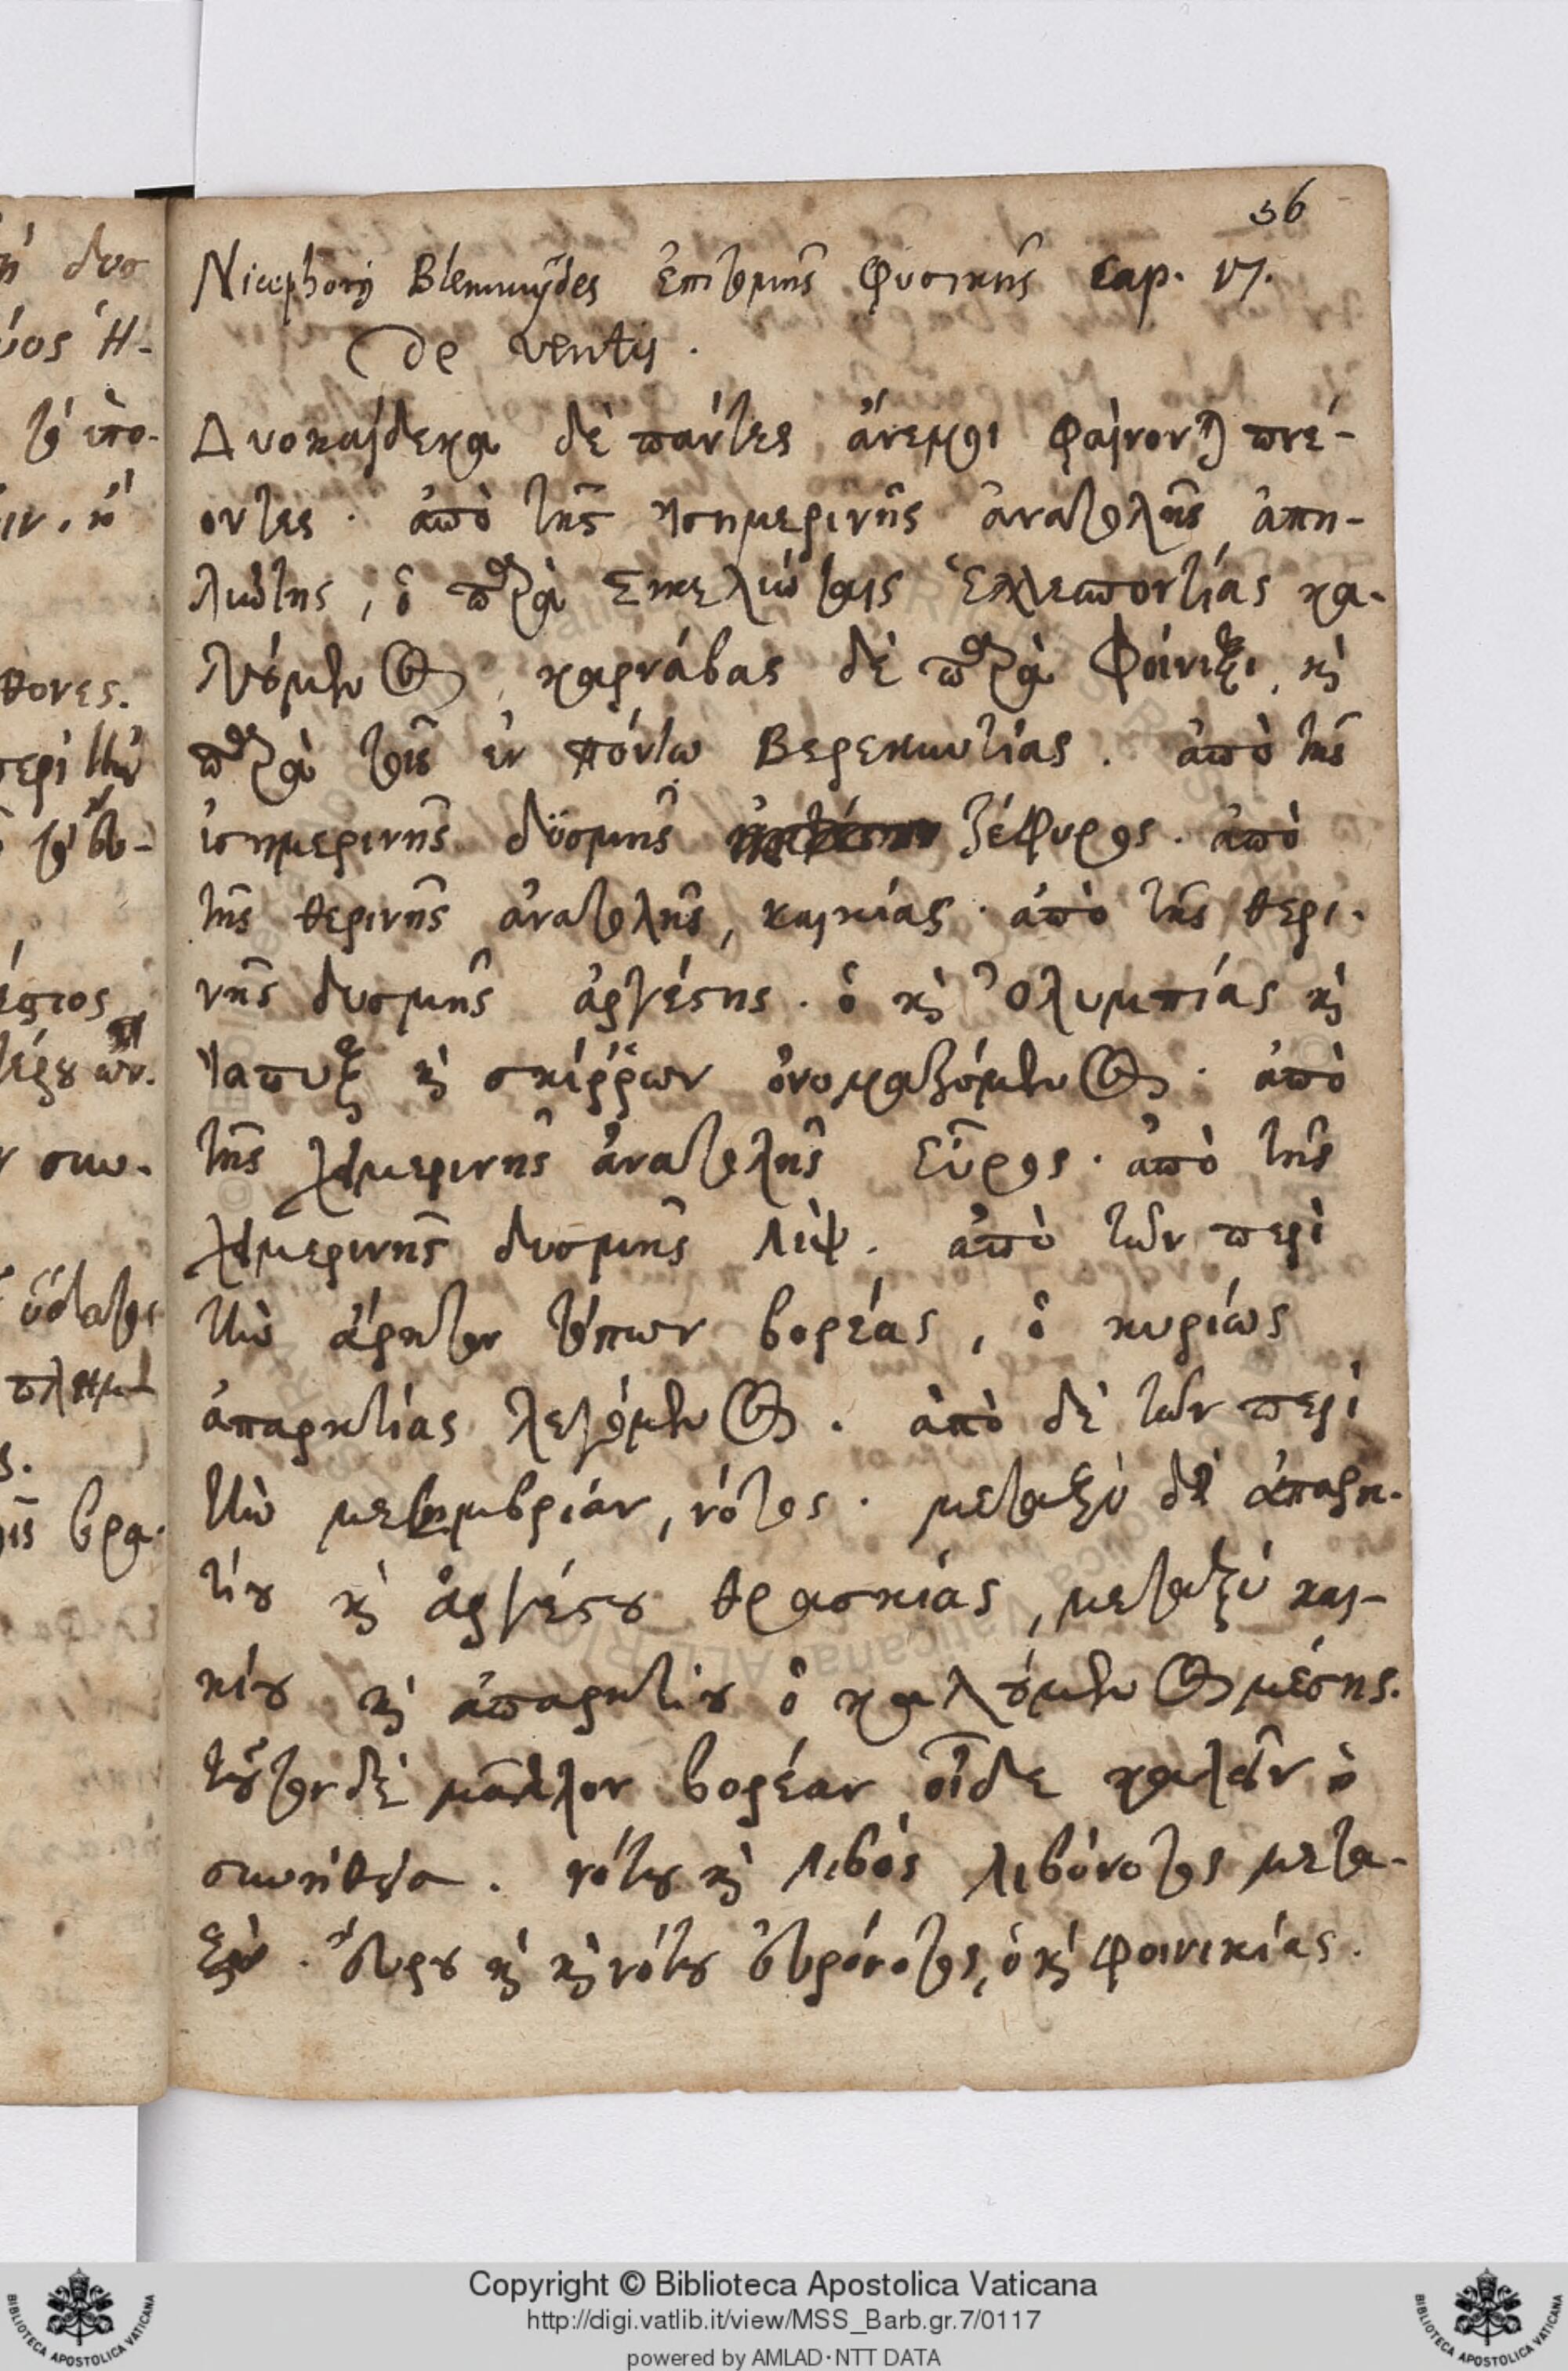 36
Nicephorj Blemmydes ἐπιτομῆς φυσικῆς cap. 17.
De ventis.
Δυοκαίδεκα δὲ πάντες ἄνεμοι φαίνονται πνέ-
οντες. ἀπὸ τῆς ἰσημερινῆς ἀνατολῆς ἀπη-
λιώτης, ὁ παρὰ Σικελιώταις Ἑλλεσποντίας κα-
λούμενος, καρνάβας δὲ παρὰ Φοίνιξι, καὶ
παρὰ τοῖς ἐν πόντω Βερεκυντίας. ἀπὸ τῆς
ἰσημερινῆς δύσμῆς ζέφυρος. ἀπὸ
τῆς θερινῆς ἀνατολῆς, καικίας. ἀπὸ τῆς θερι-
νῆς δυσμῆς ἀργέστης. ὁ καὶ Ὀλυμπίας καὶ
Ἰαπυξ καὶ σκίῤῥων ὀνομαζόμενος. ἀπὸ
τῆς χειμερινῆς ἀνατολῆς Εὖρος. ἀπὸ τῆς
χειμερινῆς δυσμῆς Λιψ. ἀπὸ τῶν περὶ
τὴν ἄρκτον τόπων βορέας, ὁ κυρίως
ἀπαρκτίας λεγόμενος. ἀπὸ δὲ τῶν περὶ
τὴν μεσημβρίαν, νότος. μεταξὺ δὲ ἀπαρκ-
τίου καὶ ἀργέστου θρασκίας, μεταξύ και-
κίου καὶ ἀπαρκτίου ὁ καλούμενος μέσης.
τοῦτον δὲ μᾶλλον βορέαν οἶδε καλεῖν ἡ
συνήθεια. νότου καὶ Λιβὸς λιβόνοτος μετα-
ξύ. εὔρου καὶ καὶ νότου εὐρόνοτος, ὁ καὶ φοινικίας.
ὴ δυσ
Ἠ-
τοῦ ὑπο-
θονες.
περὶ τὴν
συν-
πλημ
τοῖς βρα-
Copyright © Biblioteca Apostolica Vaticana
http://digi.vatlib.it/view/MSS_Barb.gr.7/0117
powered by AMLAD·NTT DATA
BIBLIOTECA APOSTOLICA VATICANA
BIBLIOTECA APOSTOLICA VATICANA